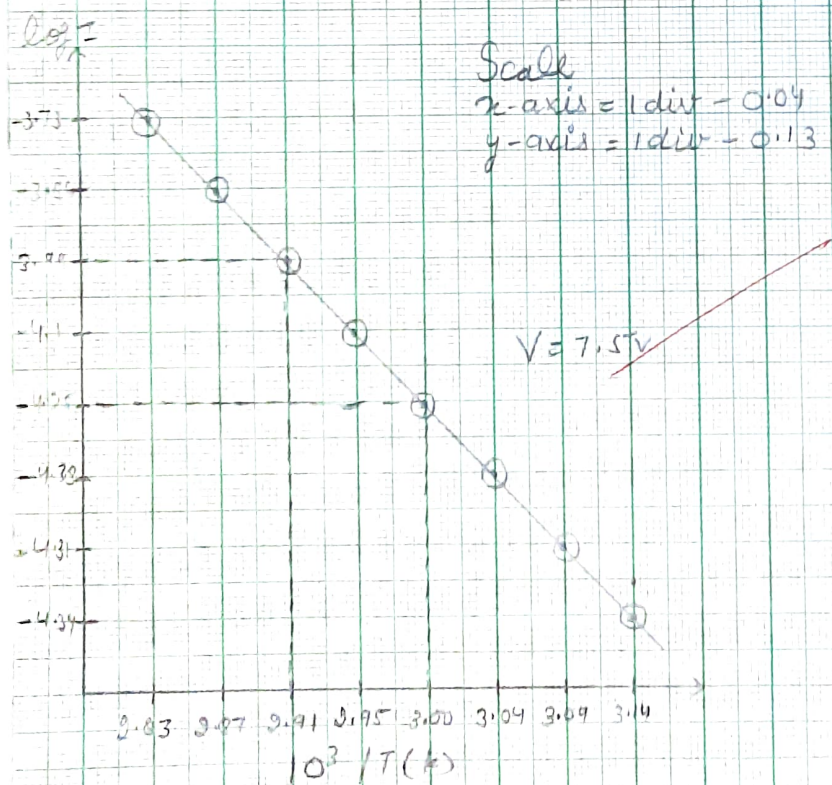 log I
Scale
x-axis = 1 div - 0.04
y-axis = 1 div - 0.13
-3.73
-4.1
V = 7.5V
-4.25
-4.38
-4.31
-4.34
2.83 2.87 2.91 2.95 3.00 3.04 3.09 3.14
10³ / T(k)